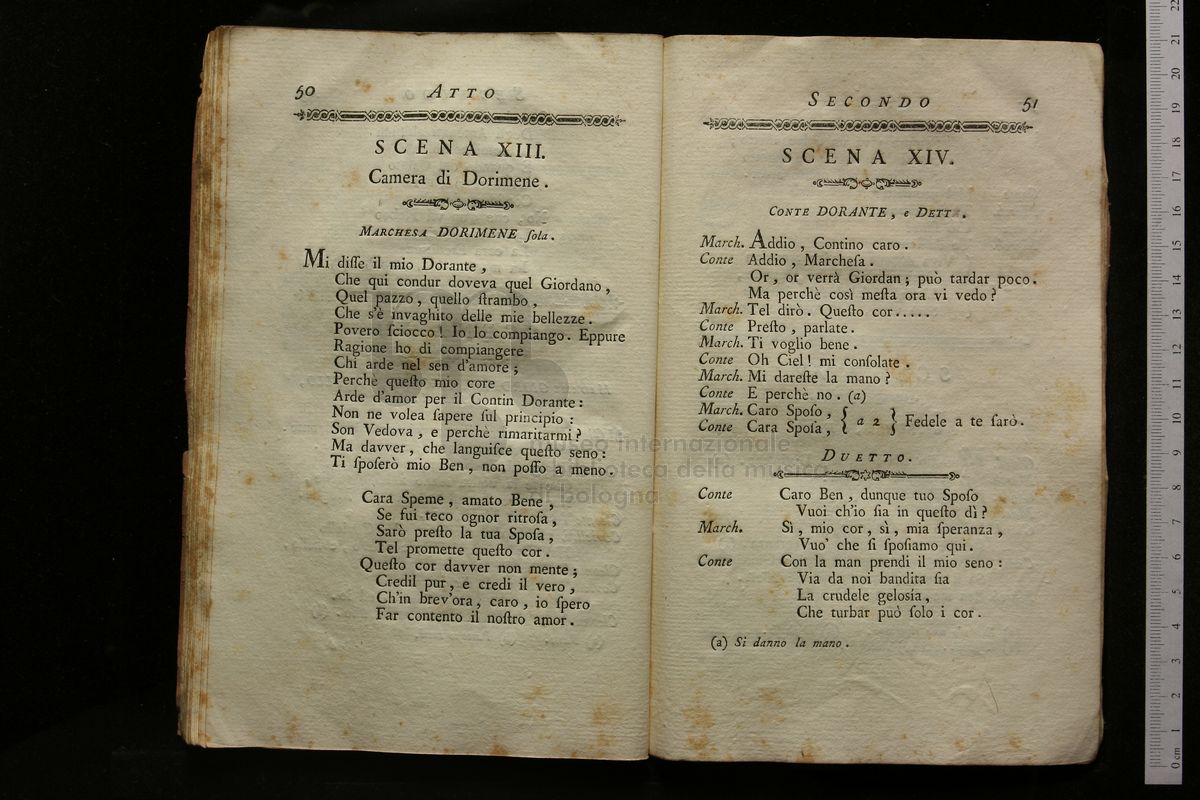 50 ATTO
SCENA XIII.
Camera di Dorimene.
MARCHESA DORIMENE ſola.
Mi diſſe il mio Dorante,
Che qui condur doveva quel Giordano,
Quel pazzo, quello ſtrambo,
Che s'è invaghito delle mie bellezze.
Povero ſciocco! Io lo compiango. Eppure
Ragione ho di compiangere
Chi arde nel sen d'amore;
Perchè queſto mio core
Arde d'amor per il Contin Dorante:
Non ne volea ſapere ſul principio:
Son Vedova, e perchè rimaritarmi?
Ma davver, che languiſce queſto seno:
Ti ſpoſerò mio Ben, non poſſo a meno.
Cara Speme, amato Bene,
Se fui teco ognor ritroſa,
Sarò preſto la tua Spoſa,
Tel promette queſto cor.
Queſto cor davver non mente;
Credil pur, e credi il vero,
Ch'in brev'ora, caro, io ſpero
Far contento il noſtro amor.
SECONDO 51
SCENA XIV.
CONTE DORANTE, e DETT.
March. Addio, Contino caro.
Conte Addio, Marcheſa.
Or, or verrà Giordan; può tardar poco.
Ma perchè così meſta ora vi vedo?
March. Tel dirò. Queſto cor.....
Conte Preſto, parlate.
March. Ti voglio bene.
Conte Oh Ciel! mi conſolate.
March. Mi dareſte la mano?
Conte E perchè no. (a)
March. Caro Spoſo, { a 2 } Fedele a te ſarò.
Conte Cara Spoſa,
DUETTO.
Conte Caro Ben, dunque tuo Spoſo
Vuoi ch'io ſia in queſto dì?
March. Sì, mio cor, sì, mia ſperanza,
Vuo' che ſi ſpoſiamo qui.
Conte Con la man prendi il mio seno:
Via da noi bandita ſia
La crudele geloſia,
Che turbar può ſolo i cor.
(a) Si danno la mano.
museo internazionale
e biblioteca della musica
di Bologna
0 cm 1 2 3 4 5 6 7 8 9 10 11 12 13 14 15 16 17 18 19 20 21 22